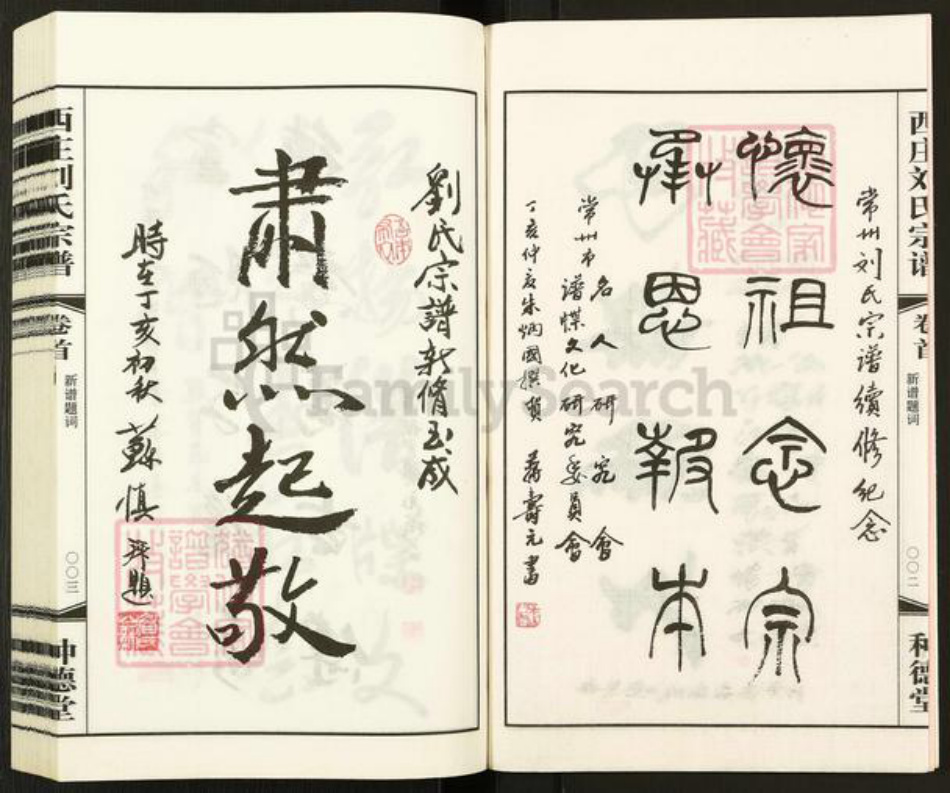 西庄刘氏宗谱
卷首
新谱题词
〇〇二
种德堂
常州刘氏宗谱續修纪念
懷祖念宗
恩報本
常州市名人研究會
谱牒文化研究委員會
丁亥仲夏朱炳國撰賀 蒋壽元書
劉氏宗譜新脩玉成
肅然起敬
時在丁亥初秋 蘇慎 題
西庄刘氏宗谱
卷首
新谱题词
〇〇三
种德堂
FamilySearch